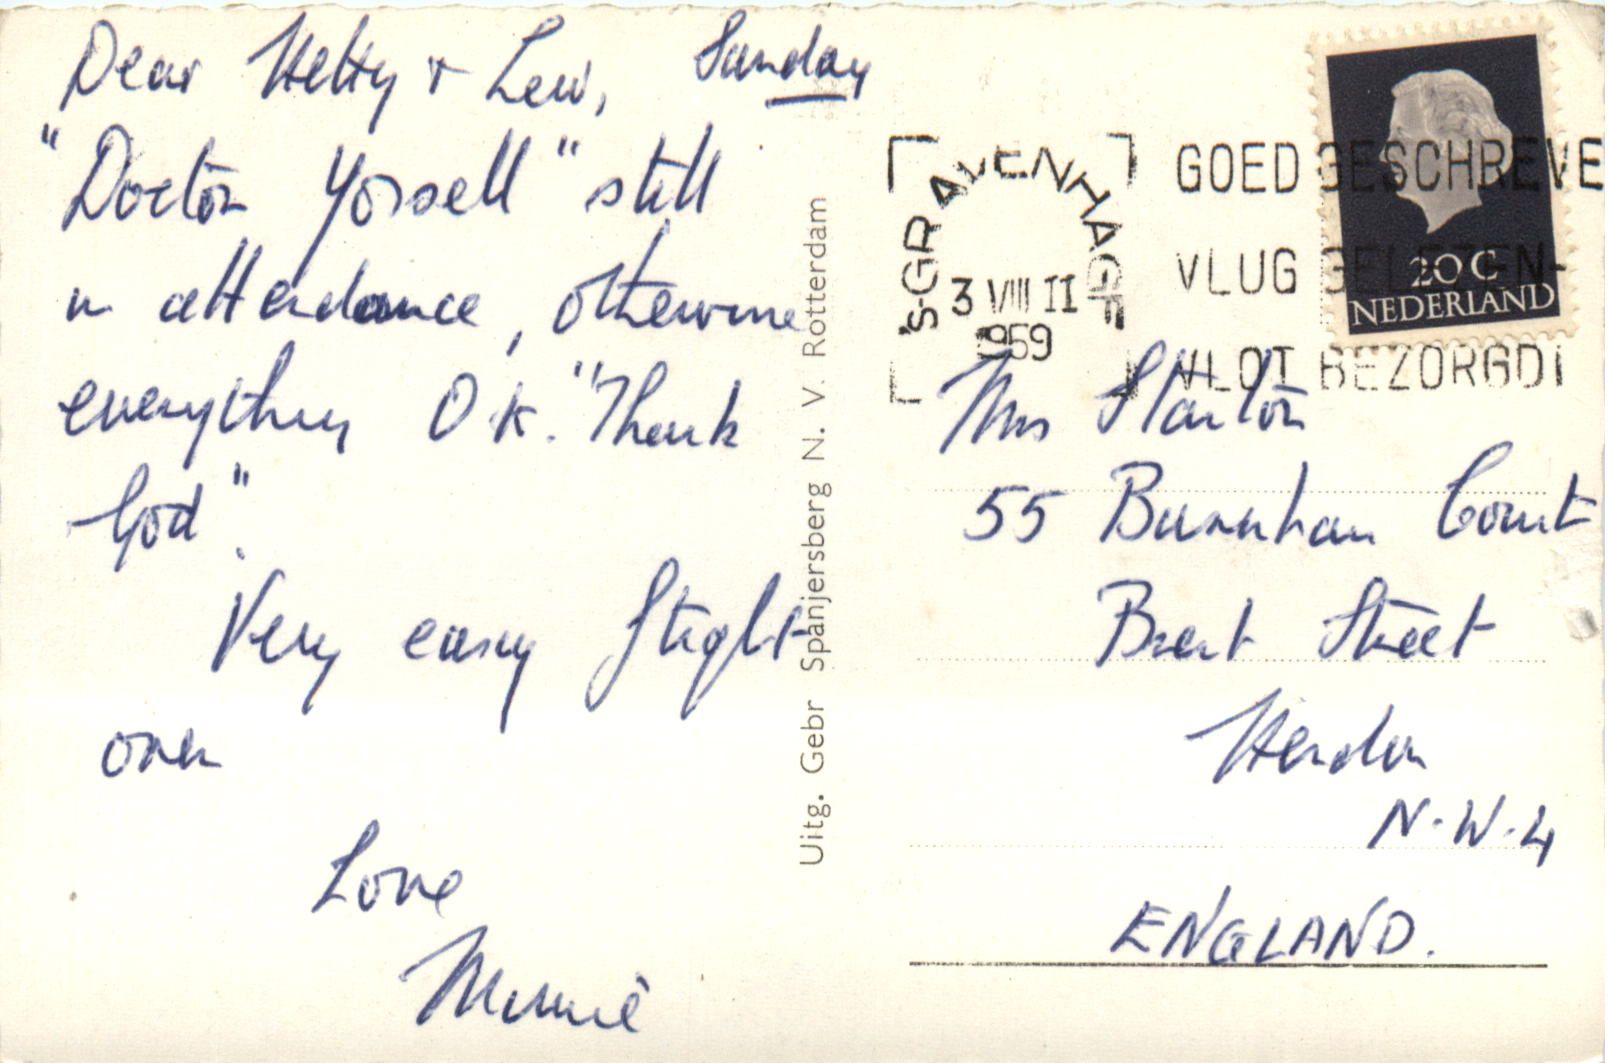 Dear Hetty & Lew, Sunday
"Doctor Yossell" still
in attendance, otherwise
everything O.K. "Thank
God".
Very easy flight
over
Love
Minnie
Uitg. Gebr Spanjersberg N. V. Rotterdam
'S-GRAVENHAGE
3 VIII 11
1969
GOED GESCHREVE
VLUG GELEZEN-
VLOT BEZORGD!
20 C
NEDERLAND
Mrs Stanton
55 Burnham Court
Brent Street
Hendon
N.W.4
ENGLAND.